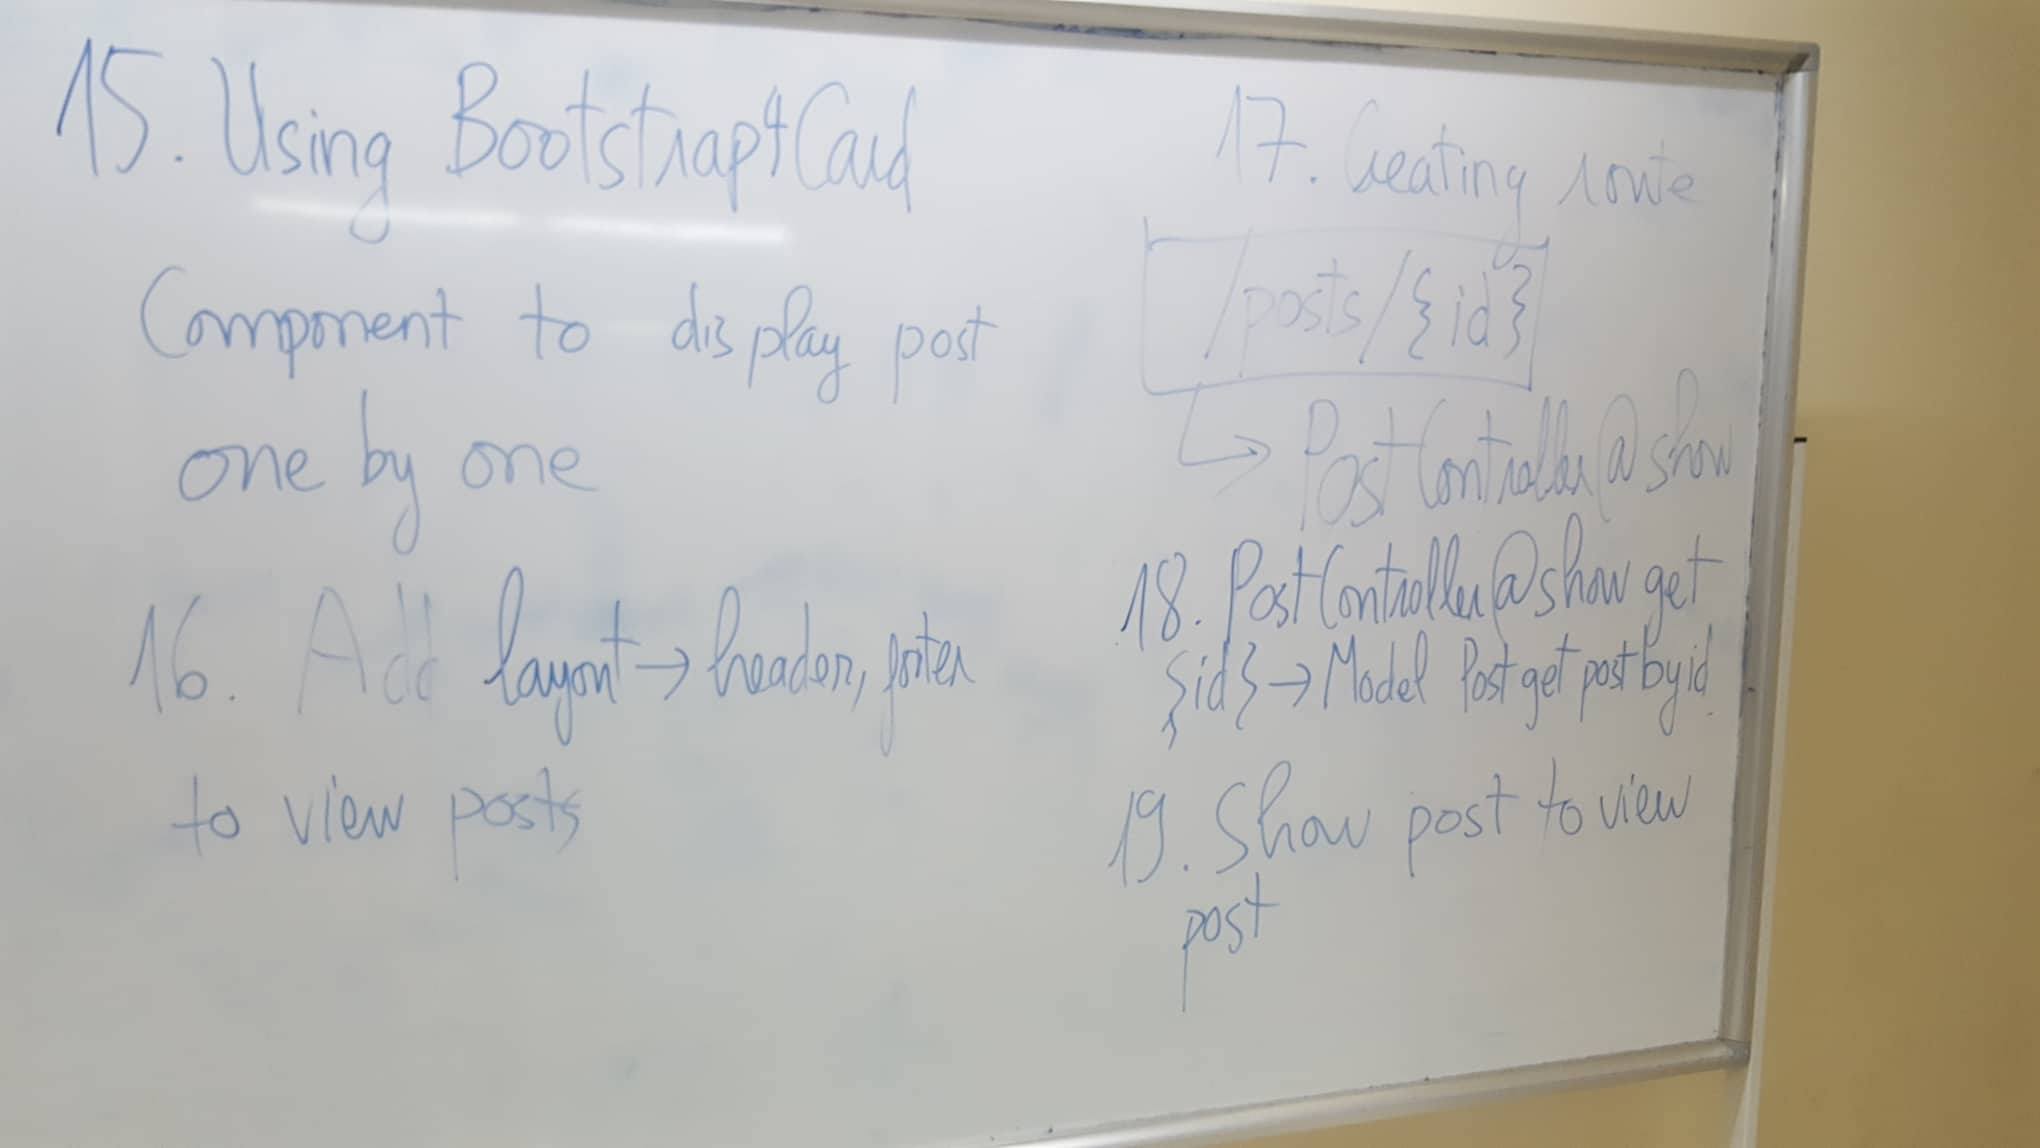 15. Using Bootstrap4 Card
Component to display post
one by one
16. Add layout → header, footer
to view posts
17. Creating route
/posts/{id}
↳ PostController@show
18. PostController@show get
{id} → Model Post get post by id
19. Show post to view
post